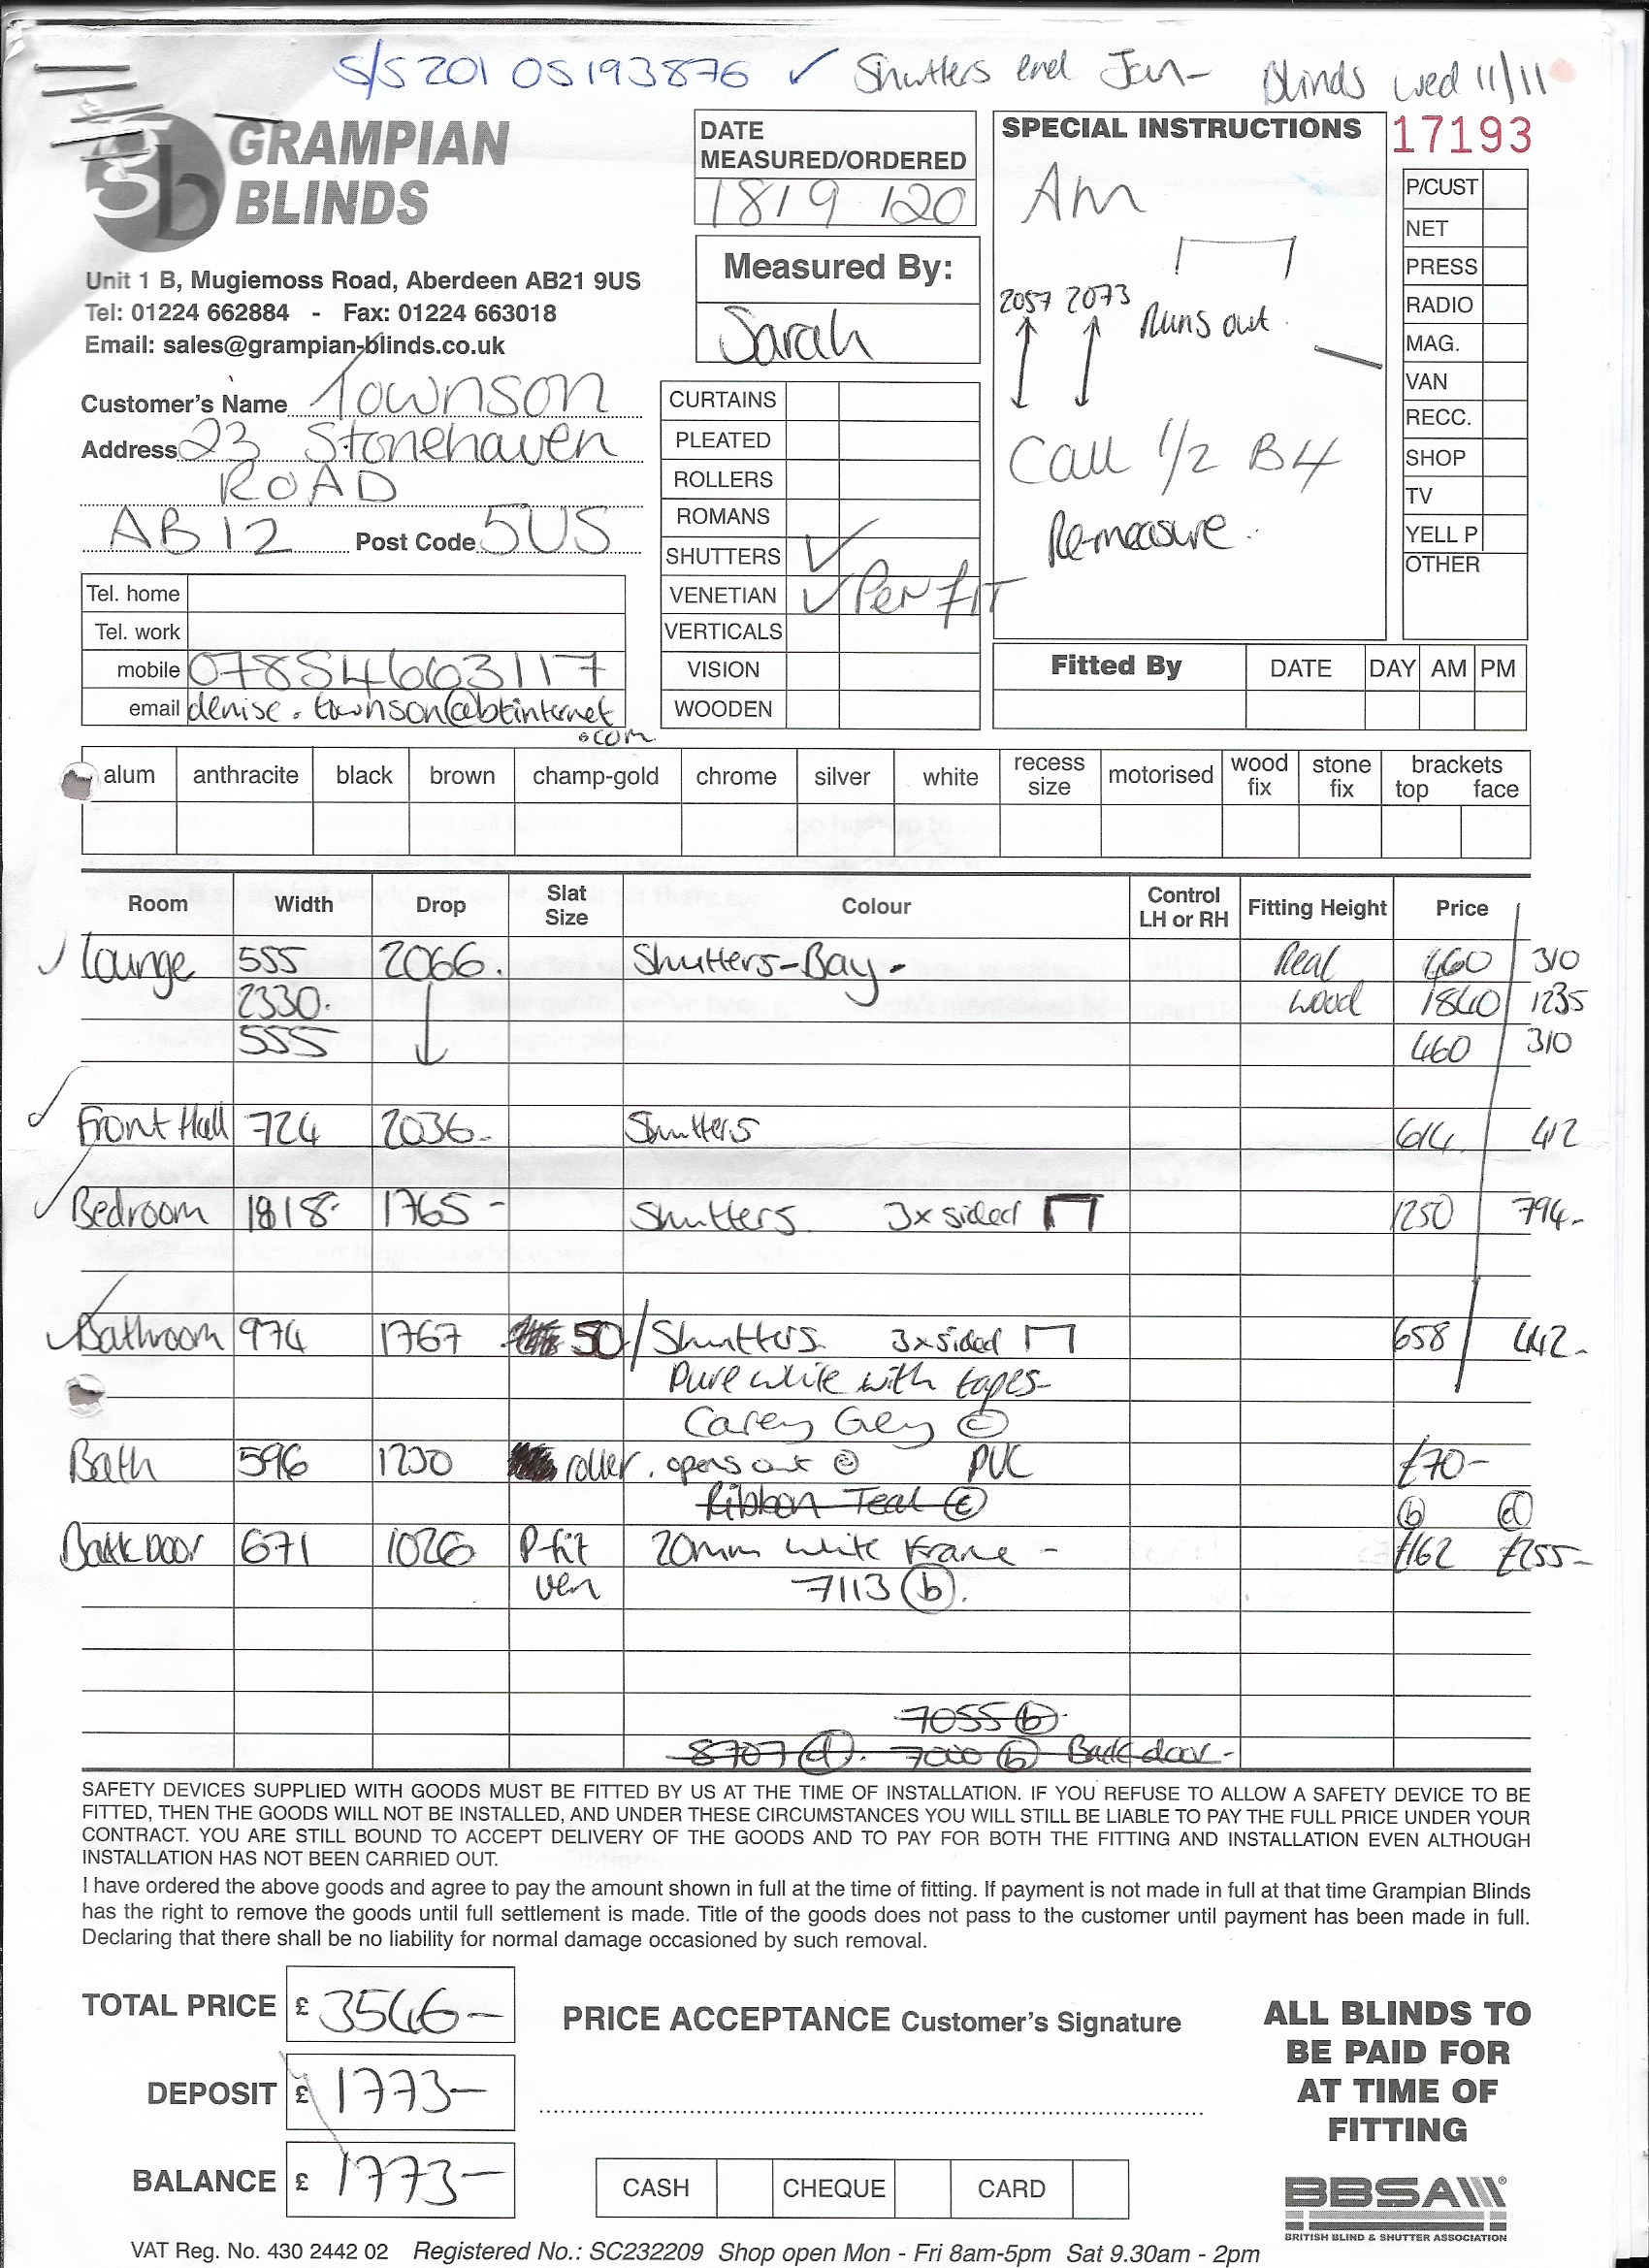 S/S201 05193876 ✓ Shutters end Jan- Blinds wed 11/11
GRAMPIAN
BLINDS
Unit 1 B, Mugiemoss Road, Aberdeen AB21 9US
Tel: 01224 662884 - Fax: 01224 663018
Email: sales@grampian-blinds.co.uk
DATE
MEASURED/ORDERED
18/9/20
Measured By:
Sarah
SPECIAL INSTRUCTIONS
Am
2057 2073 Runs out.
Call 1/2 B4
Re-measure.
17193
P/CUST
NET
PRESS
RADIO
MAG.
VAN
RECC.
SHOP
TV
YELL P
OTHER
Customer's Name Townson
Address 23 Stonehaven
ROAD
AB12 Post Code 5US
Tel. home
Tel. work
mobile 07854663117
email denise.townson@btinternet
.com
CURTAINS
PLEATED
ROLLERS
ROMANS
SHUTTERS ✓
VENETIAN ✓ Perfit
VERTICALS
VISION
WOODEN
Fitted By DATE DAY AM PM
alum anthracite black brown champ-gold chrome silver white recess size motorised wood fix stone fix brackets top face
Room Width Drop Slat Size Colour Control LH or RH Fitting Height Price
✓ Lounge 555 2066. Shutters-Bay- Real 460 310
2330. wood 1840 1235
555 460 310
✓ Front Hall 724 2036- Shutters 614. 412
✓ Bedroom 1818- 1765- Shutters. 3x sided 1250 794-
✓ Bathroom 974 1767 50/ Shutters. 3x sided 658 442-
Pure white with tapes-
Carey Grey ©
Bath 596 1230 roller. opens out © PVC £70-
Ribbon Teal ©
b d
Back Door 671 1026 P-fit 20mm white Frame - £162 £255-
ven 7113 b.
7055 b
8707 d. 7000 b Back door-
SAFETY DEVICES SUPPLIED WITH GOODS MUST BE FITTED BY US AT THE TIME OF INSTALLATION. IF YOU REFUSE TO ALLOW A SAFETY DEVICE TO BE
FITTED, THEN THE GOODS WILL NOT BE INSTALLED, AND UNDER THESE CIRCUMSTANCES YOU WILL STILL BE LIABLE TO PAY THE FULL PRICE UNDER YOUR
CONTRACT. YOU ARE STILL BOUND TO ACCEPT DELIVERY OF THE GOODS AND TO PAY FOR BOTH THE FITTING AND INSTALLATION EVEN ALTHOUGH
INSTALLATION HAS NOT BEEN CARRIED OUT.
I have ordered the above goods and agree to pay the amount shown in full at the time of fitting. If payment is not made in full at that time Grampian Blinds
has the right to remove the goods until full settlement is made. Title of the goods does not pass to the customer until payment has been made in full.
Declaring that there shall be no liability for normal damage occasioned by such removal.
TOTAL PRICE £ 3546-
DEPOSIT £ 1773-
BALANCE £ 1773-
PRICE ACCEPTANCE Customer's Signature
CASH CHEQUE CARD
ALL BLINDS TO
BE PAID FOR
AT TIME OF
FITTING
BBSA
BRITISH BLIND & SHUTTER ASSOCIATION
VAT Reg. No. 430 2442 02 Registered No.: SC232209 Shop open Mon - Fri 8am-5pm Sat 9.30am - 2pm